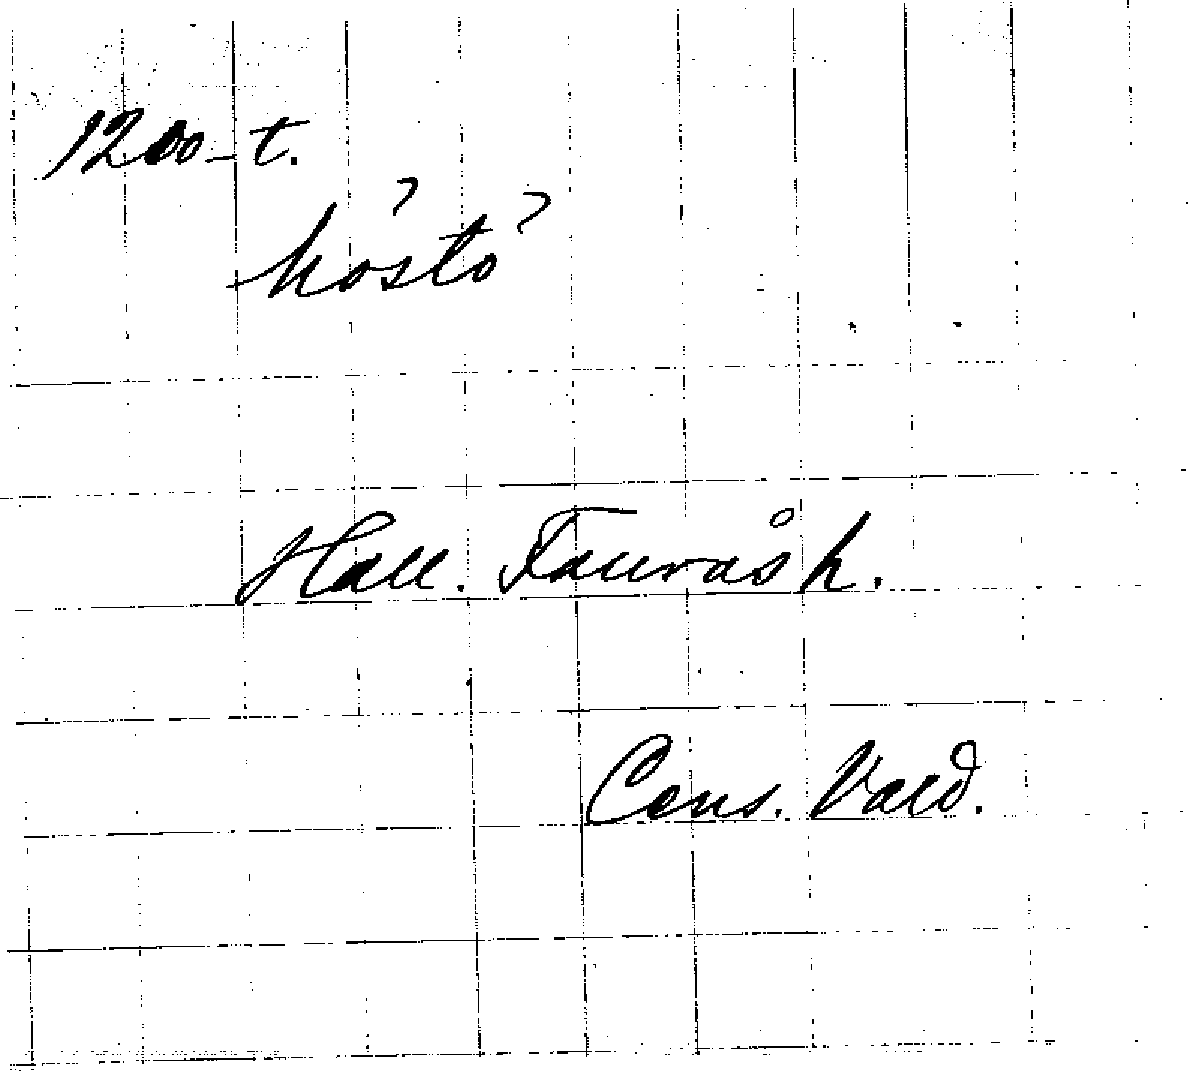 1200-t.
höstö
Hall. Faurås h.
Cens. Vald.